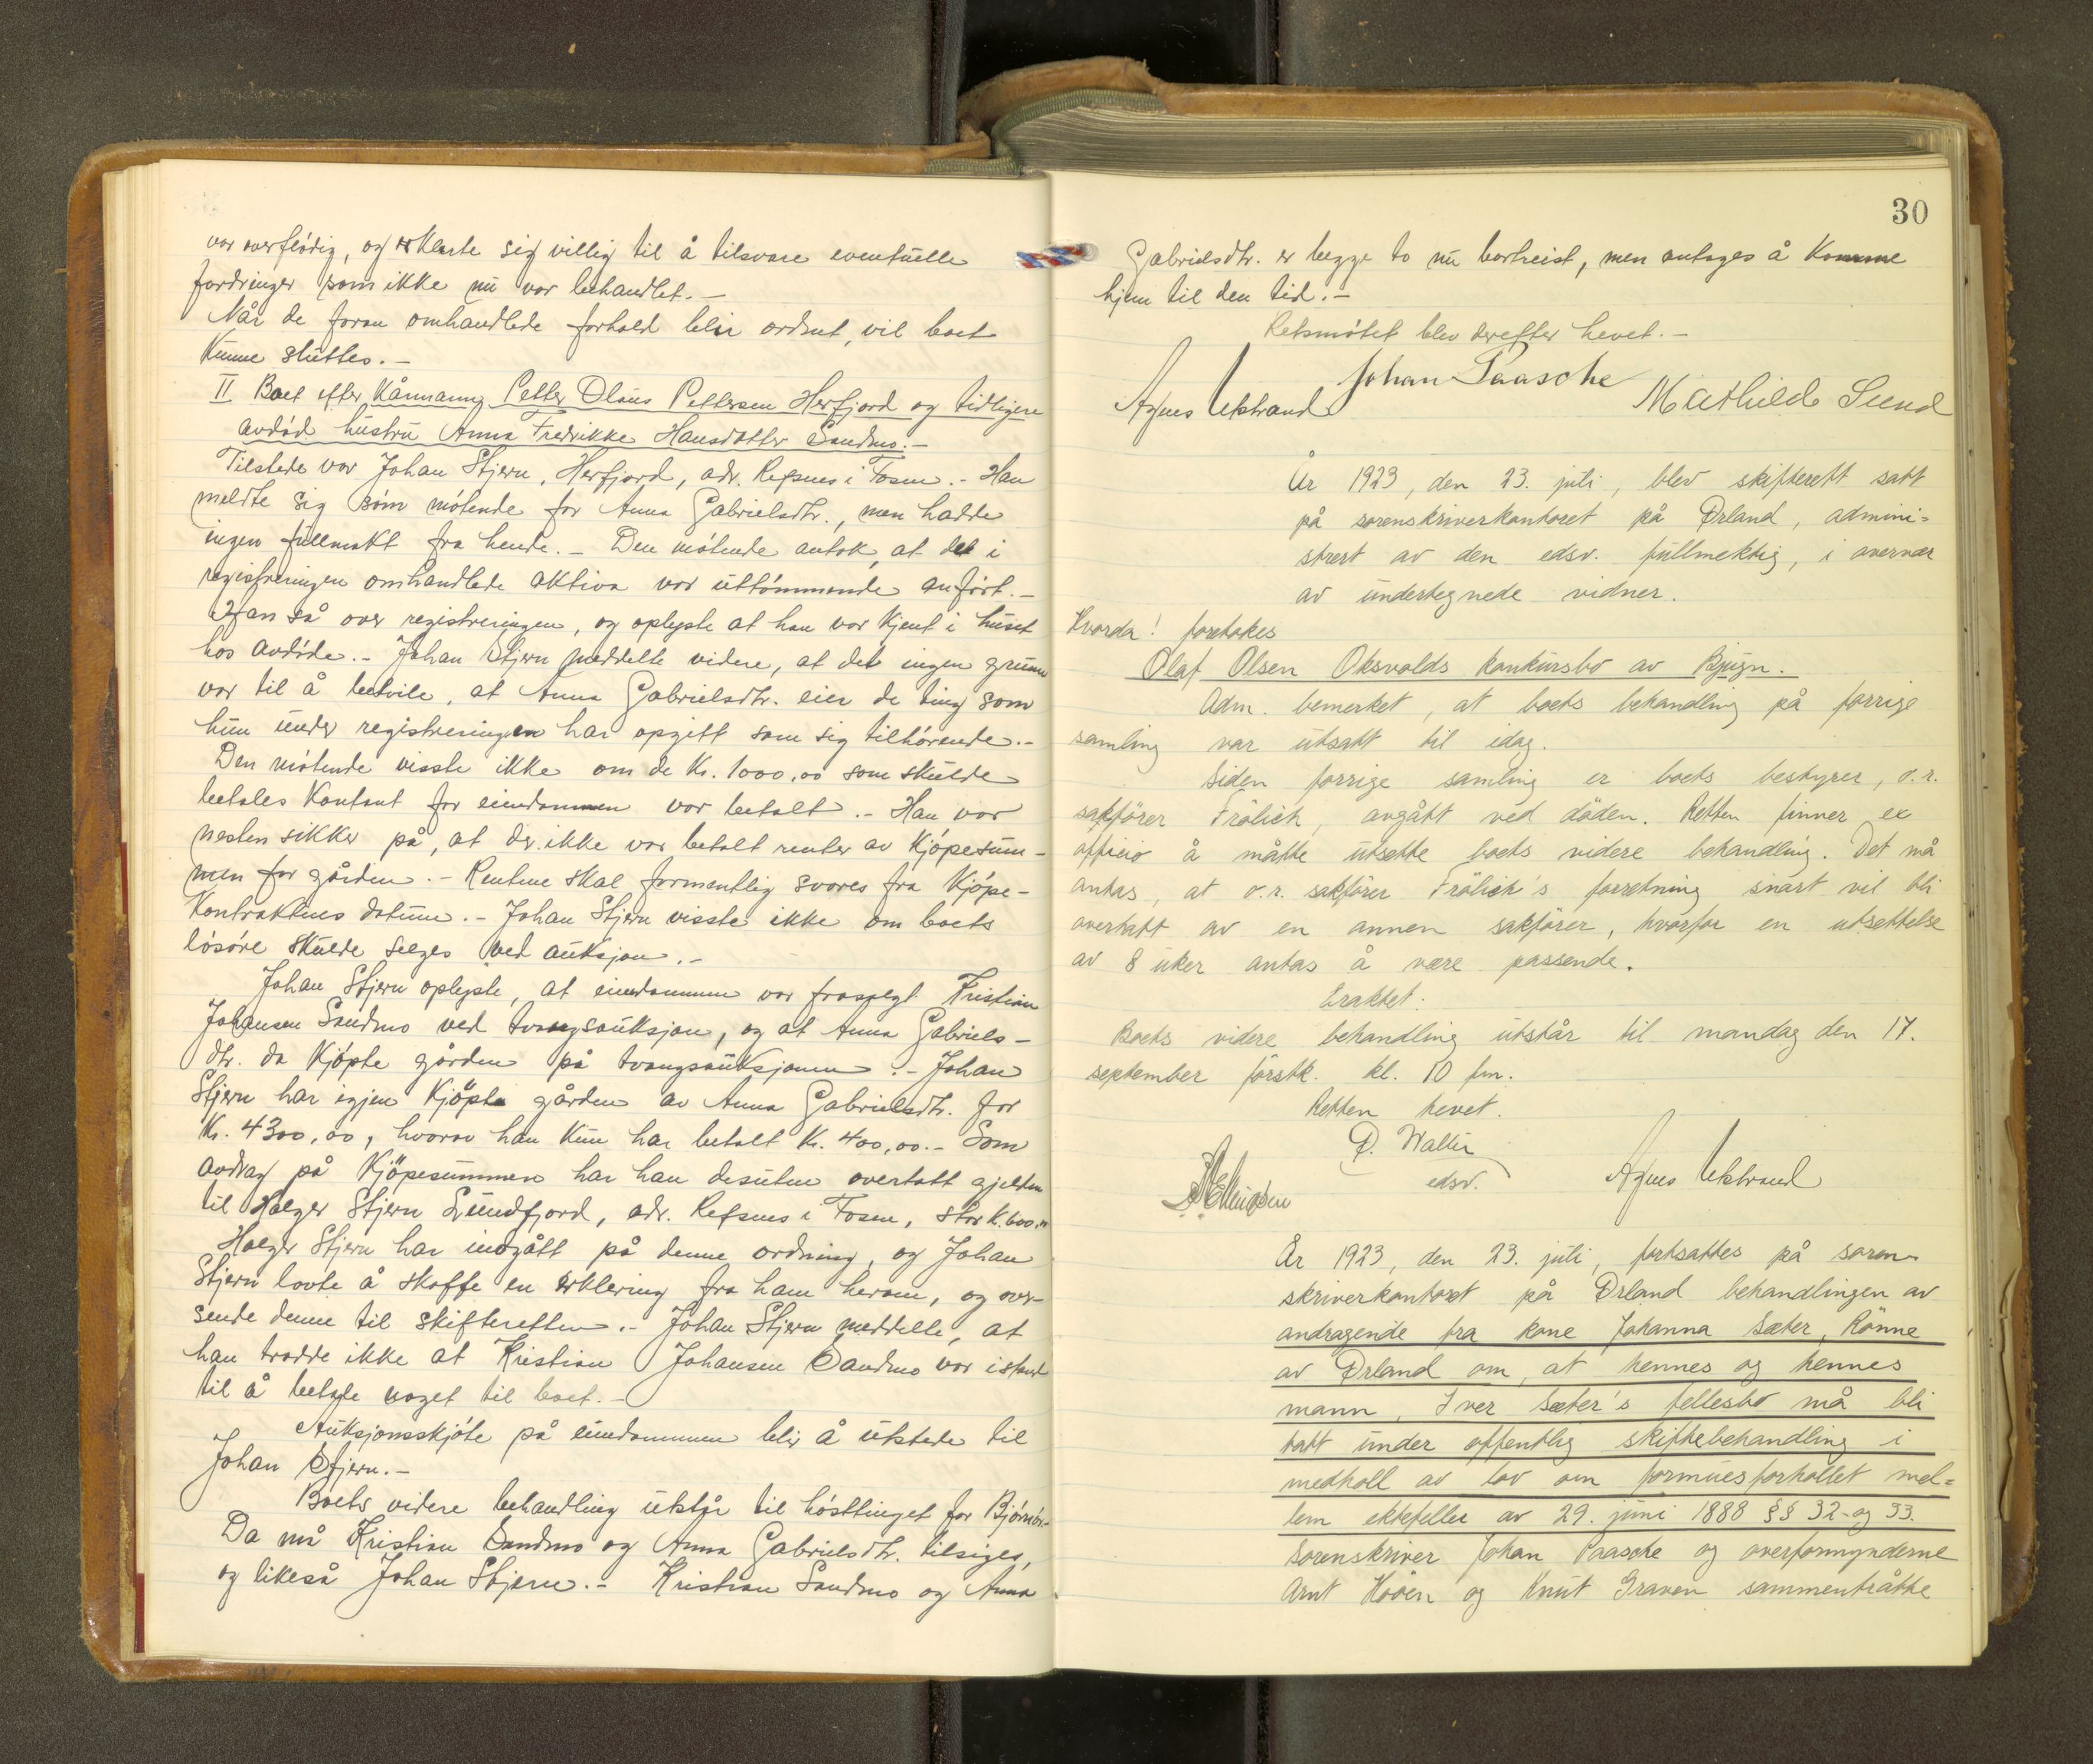 var overflödig, og erklærte sig villig til å tilsvare eventuelle
fordringer som ikke nu var behandlet.-
Når de foran omhandlede forhold blir ordnet, vil boet
kunne sluttes.-
II Boet efter kårmann Petter Olaus Pettersen Herfjord og tidligere
avdöd hustru Anna Fredrikke Hansdatter Sandmo.-
Tilstede var Johan Stjern, Herfjord, adr. Refsnes i Fosen.- Han
meldte sig som mötende for Anna Gabrielsdtr., men hadde
ingen fullmakt fra hende.- Den mötende antok, at det i
registreringen omhandlede aktiva var uttömmende anfört.-
Han så over registreringen, og oplyste at han var kjent i huset
hos avdöde.- Johan Stjern meddelte videre, at det ingen grunn
var til å betvile, at Anna Gabrielsdtr. eier de ting som
hun under registreringen har opgitt som sig tilhörende.-
Den mötende visste ikke om de Kr. 1000,00 som skulde
betales kontant for eiendommen var betalt.- Han var
nesten sikker på, at der ikke var betalt renter av kjöpesum-
men for gården.- Rentene skal formentlig svares fra kjöpe-
kontraktens datum.- Johan Stjern visste ikke om boets
lösöre skulde selges ved auksjon.-
Johan Stjern oplyste, at eiendommen var frasolgt Kristian
Johansen Sandmo ved tvangsauksjon, og at Anna Gabriels-
dtr. da kjöpte gården på tvangsauksjonen.- Johan
Stjern har igjen kjöpt gården av Anna Gabrielsdtr. for
Kr. 4300,00, hvorav han kun har betalt Kr. 400,00.- Som
avdrag på kjöpesummen har han desuten overtatt gjelden
til Holger Stjern Sundfjord, adr. Refsnes i Fosen, stor K. 600,00
Holger Stjern har indgått på denne ordning, og Johan
Stjern lovte å skaffe en erklering fra ham herom, og over-
sende denne til skifteretten.- Johan Stjern meddelte, at
han trodde ikke at Kristian Johansen Sandmo var istand
til å betale noget til boet.-
Auksjonsskjöte på eiendommen blir å utstede til
Johan Stjern.-
Boets videre behandling utstår til hösttinget for Björnör.-
Da må Kristian Sandmo og Anna Gabrielsdtr. tilsiges,
og likeså Johan Stjern.- Kristian Sandmo og Anna
30
Gabrielsdtr. er begge to nu bortreist, men antages å komme
hjem til den tid.-
Retsmötet blev derefter hevet.-
Johan Paasche
Agnes Ukstrand Mathilde Sund
År 1923, den 23. juli, blev skifterett satt
på sorenskriverkontoret på Ørland, admini=
strert av den edsv. fullmektig, i overvær
av undertegnede vidner.
Hvorda! foretokes
Olaf Olsen Oksvolds konkursbo av Bjugn.
Adm. bemerket, at boets behandling på forrige
samling var utsatt til idag.
Siden forrige samling er boets bestyrer, o.r.
sakförer Frölich, avgått ved döden. Retten finner ex
officio å måtte utsette boets videre behandling. Det må
antas, at o.r. sakförer Frölich's forretning snart vil bli
overtatt av en annen sakförer, hvorfor en utsettelse
av 8 uker antas å være passende.
Eraktet:
Boets videre behandling utstår til mandag den 17.
september förstk. kl. 10 fm.
Retten hevet.
Ø. Walter
edsv.
Agnes Ukstrand
År 1923, den 23. juli, fortsattes på soren-
skriverkontoret på Ørland behandlingen av
andragende fra kone Johanna Sæter, Rönne
av Ørland om, at hennes og hennes
mann, Iver Sæter's fellesbo må bli
tatt under offentlig skiftebehandling i
medhold av lov om formuesforholdet mel=
lem ektefeller av 29. juni 1888 §§ 32 og 33.
Sorenskriver Johan Paasche og overformynderne
Arnt Hovèn og Knut Graven sammentrådte